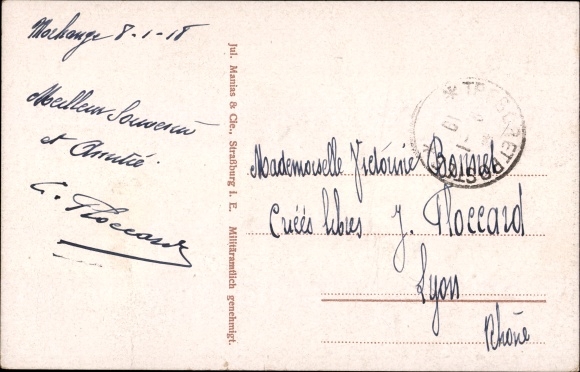 Morhange 8-1-18
Meilleur Souvenir
et Amitié.
C. Floccard
Jul. Manias & Cie., Straßburg i. E. Militäramtlich genehmigt.
* TRÉSOR ET POSTES *
Mademoiselle Victorine
Criées libres J. Floccard
Lyon
Rhône